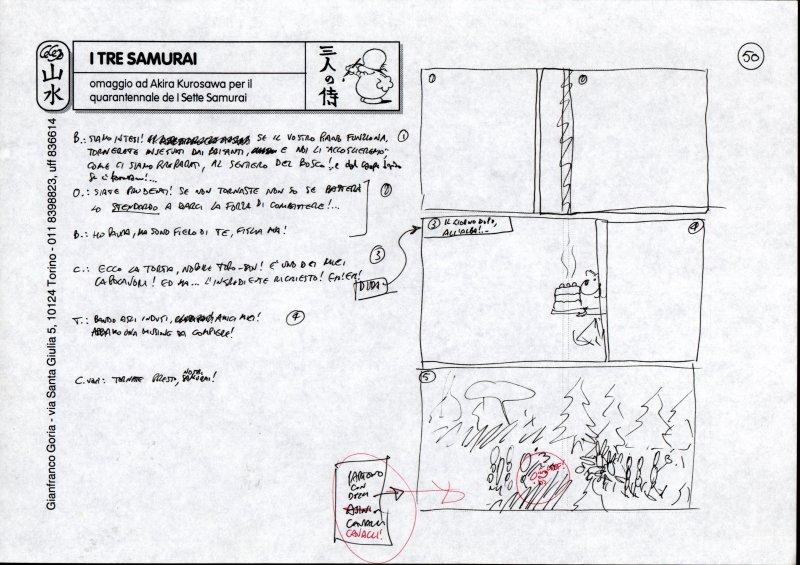 山水
I TRE SAMURAI
omaggio ad Akira Kurosawa per il
quarantennale de I Sette Samurai
三人の侍
50
Gianfranco Goria - via Santa Giulia 5, 10124 Torino - 011 8398823, uff 836614
B.: SIAMO INTESI! SE IL VOSTRO PIANO FUNZIONA, 1
TORNERETE INSEGUITI DAI BRIGANTI, E NOI LI ACCOGLIEREMO
COME CI SIAMO PREPARATI, AL SENTIERO DEL BOSCO!
O.: SIATE PRUDENTI! SE NON TORNASTE NON SO SE BASTERÀ 2
LO STENDARDO A DARCI LA FORZA DI COMBATTERE!...
B.: HO PAURA, MA SONO FIERO DI TE, FIGLIA MIA!
3
C.: ECCO LA TORTA, NOBILE TORO-SAN! È UNO DEI MIEI
CAPOLAVORI! ED HA... L'INGREDIENTE RICHIESTO! EHEM!
DIDA
T.: BANDO AGLI INDUGI, AMICI MIEI! 4
ABBIAMO UNA MISSIONE DA COMPIERE!
C. VARI: TORNATE PRESTO, NOSTRI SAMURAI!
1
2
3 IL GIORNO DOPO,
ALL'ALBA!...
4
5
PARTONO
CON
CAVALLI
CAVALLI!